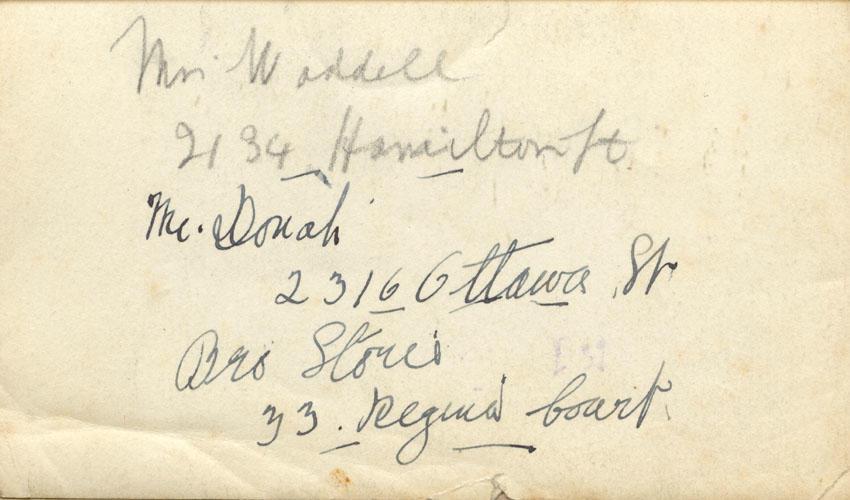 Mrs Waddell
2134 Hamilton St
Mc. Donah
2316 Ottawa St
Bro Stores
33. Regina Court